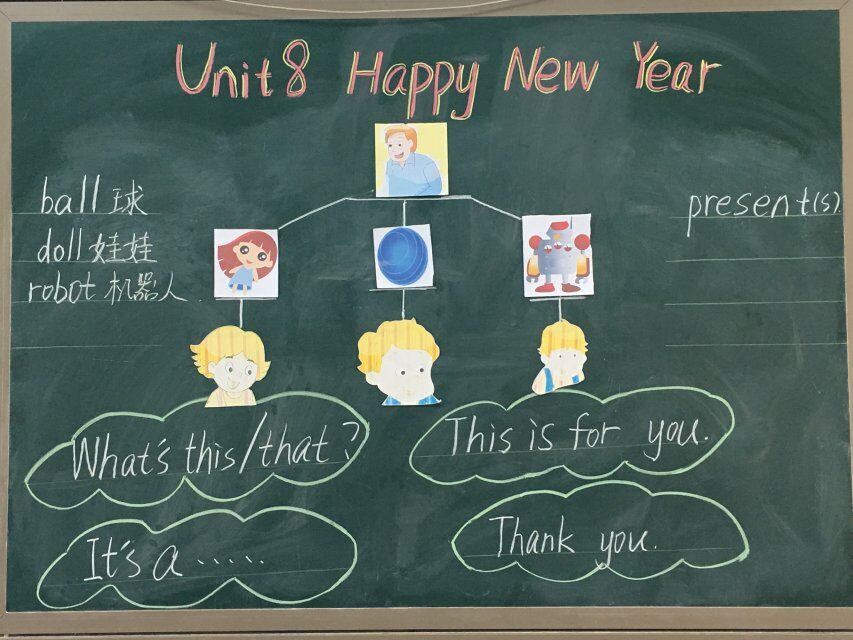 Unit 8 Happy New Year
ball 球
doll 娃娃
robot 机器人
present(s)
What's this/that?
This is for you.
It's a ......
Thank you.